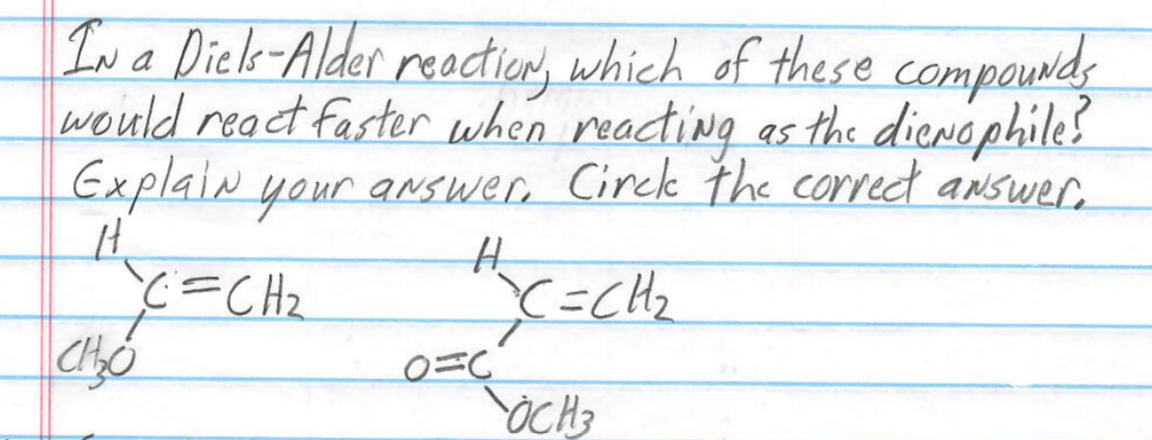 In a Diels-Alder reaction, which of these compounds
would react faster when reacting as the dienophile?
Explain your answer. Circle the correct answer.
H H
C=CH2 C=CH2
CH3O O=C
OCH3